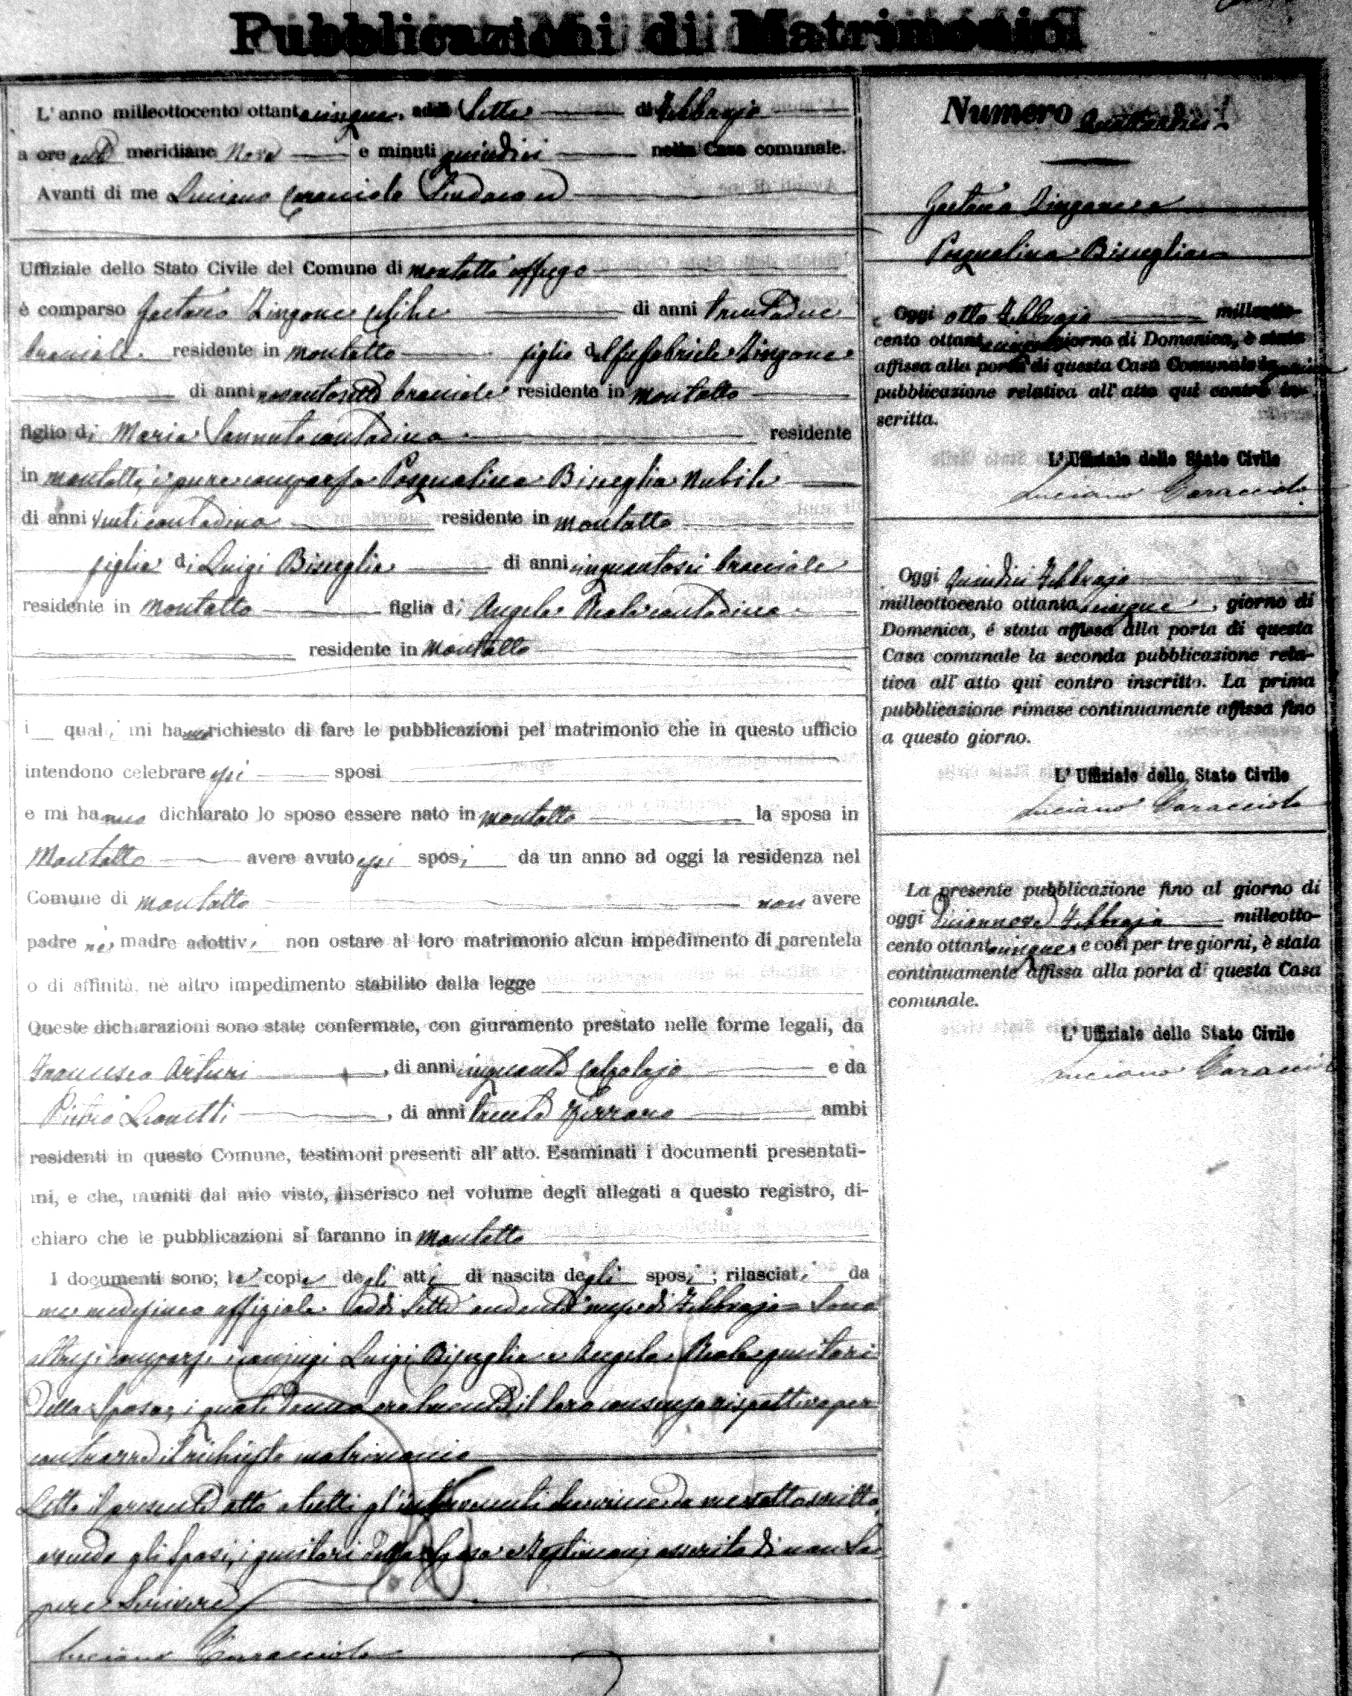 Pubblicazioni di Matrimonio
L'anno milleottocento ottantacinque, addì Sette di Febbrajo
a ore ant meridiane Nove e minuti quindici nella Casa comunale.
Avanti di me Luciano Caracciolo Sindaco
Uffiziale dello Stato Civile del Comune di montalto uffugo
è comparso Gaetano Zingone celibe di anni trentadue
bracciale residente in montalto figlio del fu Gabriele Zingone
di anni bracciale residente in montalto
figlio di Maria contadina residente
in montalto, è pure comparsa Pasqualina Bisceglia Nubile
di anni venti contadina residente in montalto
figlia di Luigi Bisceglia di anni cinquantasei bracciale
residente in montalto figlia di Angela Reale contadina
residente in montalto
i quali mi hanno richiesto di fare le pubblicazioni pel matrimonio che in questo ufficio
intendono celebrare essi sposi
e mi hanno dichiarato lo sposo essere nato in montalto la sposa in
Montalto avere avuto essi sposi da un anno ad oggi la residenza nel
Comune di montalto non avere
padre nè madre adottivi non ostare al loro matrimonio alcun impedimento di parentela
o di affinità, ne altro impedimento stabilito dalla legge
Queste dichiarazioni sono state confermate, con giuramento prestato nelle forme legali, da
Francesco Arturi, di anni cinquanta Calzolajo e da
Pietro Lionetti, di anni trenta ferraro ambi
residenti in questo Comune, testimoni presenti all' atto. Esaminati i documenti presentati-
mi, e che, muniti dal mio visto, inserisco nel volume degli allegati a questo registro, di-
chiaro che le pubblicazioni si faranno in montalto
I documenti sono; le copie degli atti di nascita degli sposi; rilasciati da
me medesimo uffiziale addì Sette andante mese di Febbrajo Sono
altresì comparsi i conjugi Luigi Bisceglia e Angela Reale genitori
della Sposa, i quali danno oralmente il loro consenso rispettivo per
contrarre il richiesto matrimonio
Letto il presente atto a tutti gl'intervenuti
gli Sposi, i genitori della Sposa e Testimonj asserito di non Sa-
pere Scrivere
Luciano Caracciolo
Numero
Gaetano Zingone e
Pasqualina Bisceglia
Oggi otto Febbrajo milleotto-
cento ottantacinque giorno di Domenica, è stata
affissa alla porta di questa Casa Comunale la prima
pubblicazione relativa all' atto qui contro in-
scritta.
L'Uffiziale dello Stato Civile
Luciano Caracciolo
Oggi Quindici Febbrajo
milleottocento ottantacinque, giorno di
Domenica, é stata affissa alla porta di questa
Casa comunale la seconda pubblicazione rela-
tiva all' atto qui contro inscritto. La prima
pubblicazione rimase continuamente affissa fino
a questo giorno.
L' Uffiziale dello Stato Civile
Luciano Caracciolo
La presente pubblicazione fino al giorno di
oggi Diciannove Febbrajo milleotto-
cento ottantacinque, e così per tre giorni, è stata
continuamente affissa alla porta di questa Casa
comunale.
L' Uffiziale dello Stato Civile
Luciano Caracciolo